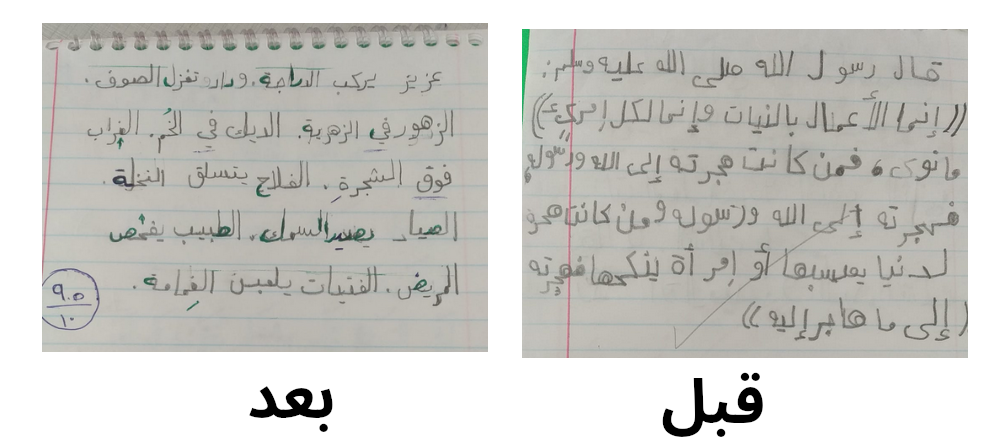 قال رسول الله صلى الله عليه وسلم:
((إنما الأعمال بالنيات وإنما لكل إمرئ))
ما نوى، فمن كانت هجرته إلى الله ورسوله،
فهجرته إلى الله ورسوله ومن كانت هجر
لدنيا يصيبها أو إمرأة ينكحها فهجرته
(إلى ما هاجر إليه))
قبل
عزيز يركب الدراجة. وداد تغزل الصوف.
الزهور في الزهرية. الديك في الخُم. الغراب
فوق الشجرةِ. الفلاح يتسلق النخلة.
الصياد يصيد السمك. الطبيب يفحص
المريض. الفتيات يلعبن الغمامة.
٩.٥
١٠
بعد